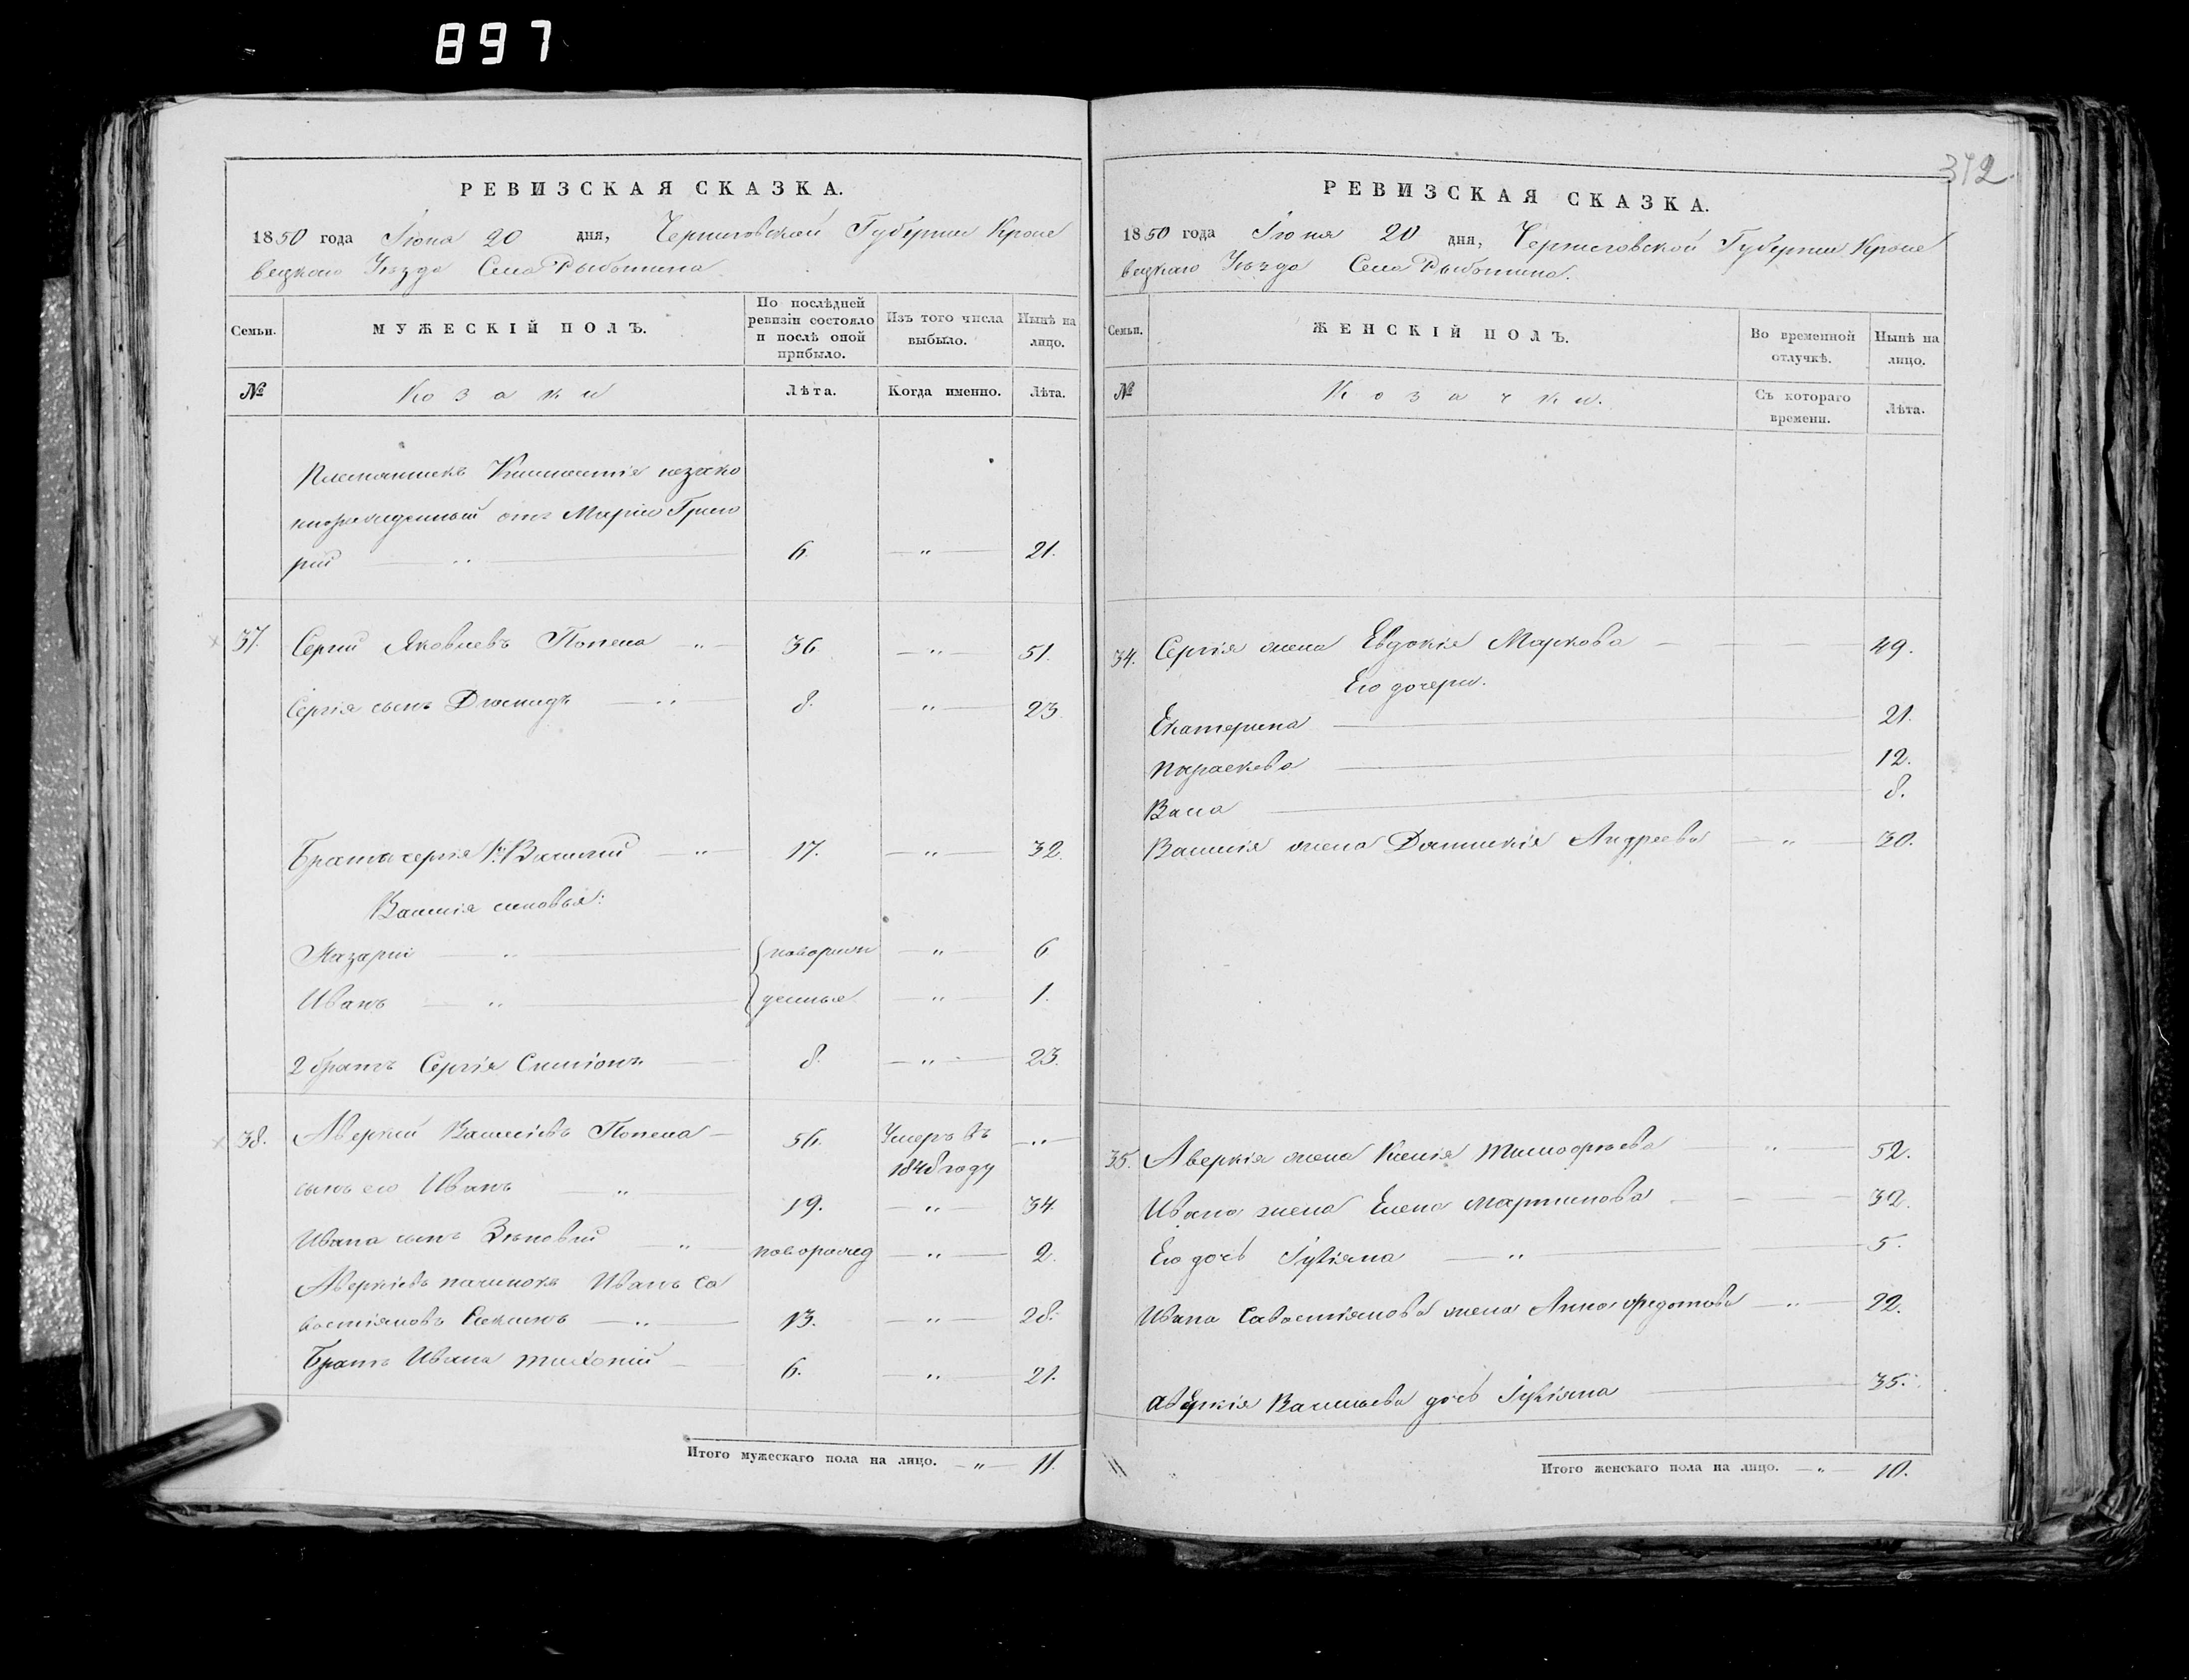 897
РЕВИЗСКАЯ СКАЗКА.
1850 года Июня 20 дня, Черниговской Губернии Кроле
вецкаго Уѣзда Села Рыботина.
Семьи.
МУЖЕСКІЙ ПОЛЪ.
По послѣдней
ревизіи состояло
и послѣ оной
прибыло.
Изъ того числа
выбыло.
Нынѣ на
лицо.
№
Козаки
Лѣта.
Когда именно.
Лѣта.
Племянникъ незако
норожденный отъ Маріи Григо
рій " 6. " 21.
37. Сергій Яковлевъ Попена " 36 " 51.
Сергія сынъ Діомидъ " 8. " 23
Братья Сергія 1й Василий " 17. " 32.
Василія сыновья:
Назарій " новорож " 6
Иванъ " денные " 1.
2 братъ Сергія Симіонъ 8. " 23.
38. Аверкій Василіевъ Попена 56. Умеръ въ "
1848 году
сынъ его Иванъ " 19. " 34.
Ивана сынъ Зѣновій " новорожд " 2.
Аверкіевъ Иванъ Са
вастіяновъ " 13. " 28.
Братъ Ивана 6. " 21.
Итого мужескаго пола на лицо. " 11.
342.
РЕВИЗСКАЯ СКАЗКА.
1850 года Июня 20 дня, Черниговской Губернии Кроле
вецкаго Уѣзда Села Рыботина.
Семьи.
ЖЕНСКІЙ ПОЛЪ.
Во временной
отлучкѣ.
Нынѣ на
лицо.
№
Козачки.
Съ котораго
времени.
Лѣта.
34. Сергія жена Евдокія Маркова 49.
Его дочери.
Екатерина 21.
Параскева 12.
Васа 8.
Василія жена Домникія Андреева " 30.
35. Аверкія жена Ксенія Тимофѣева " 52.
Ивана жена Елена Мартинова 32.
Его дочь Іуліяна " 5.
Ивана Савастіянова жена Анна Федотова " 22.
Аверкія Васильева дочь Іуліяна 35.
Итого женскаго пола на лицо. " 10.